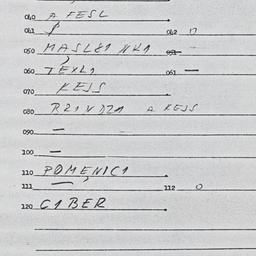 040 A FESL
041 042 17
050 MASL81 NK1 051
060 TEXL1 061 —
070 KESS
080 RZ1VDZA A KESS
090 —
100 —
110 POMENICI
111 — 112 O
120 C1BER